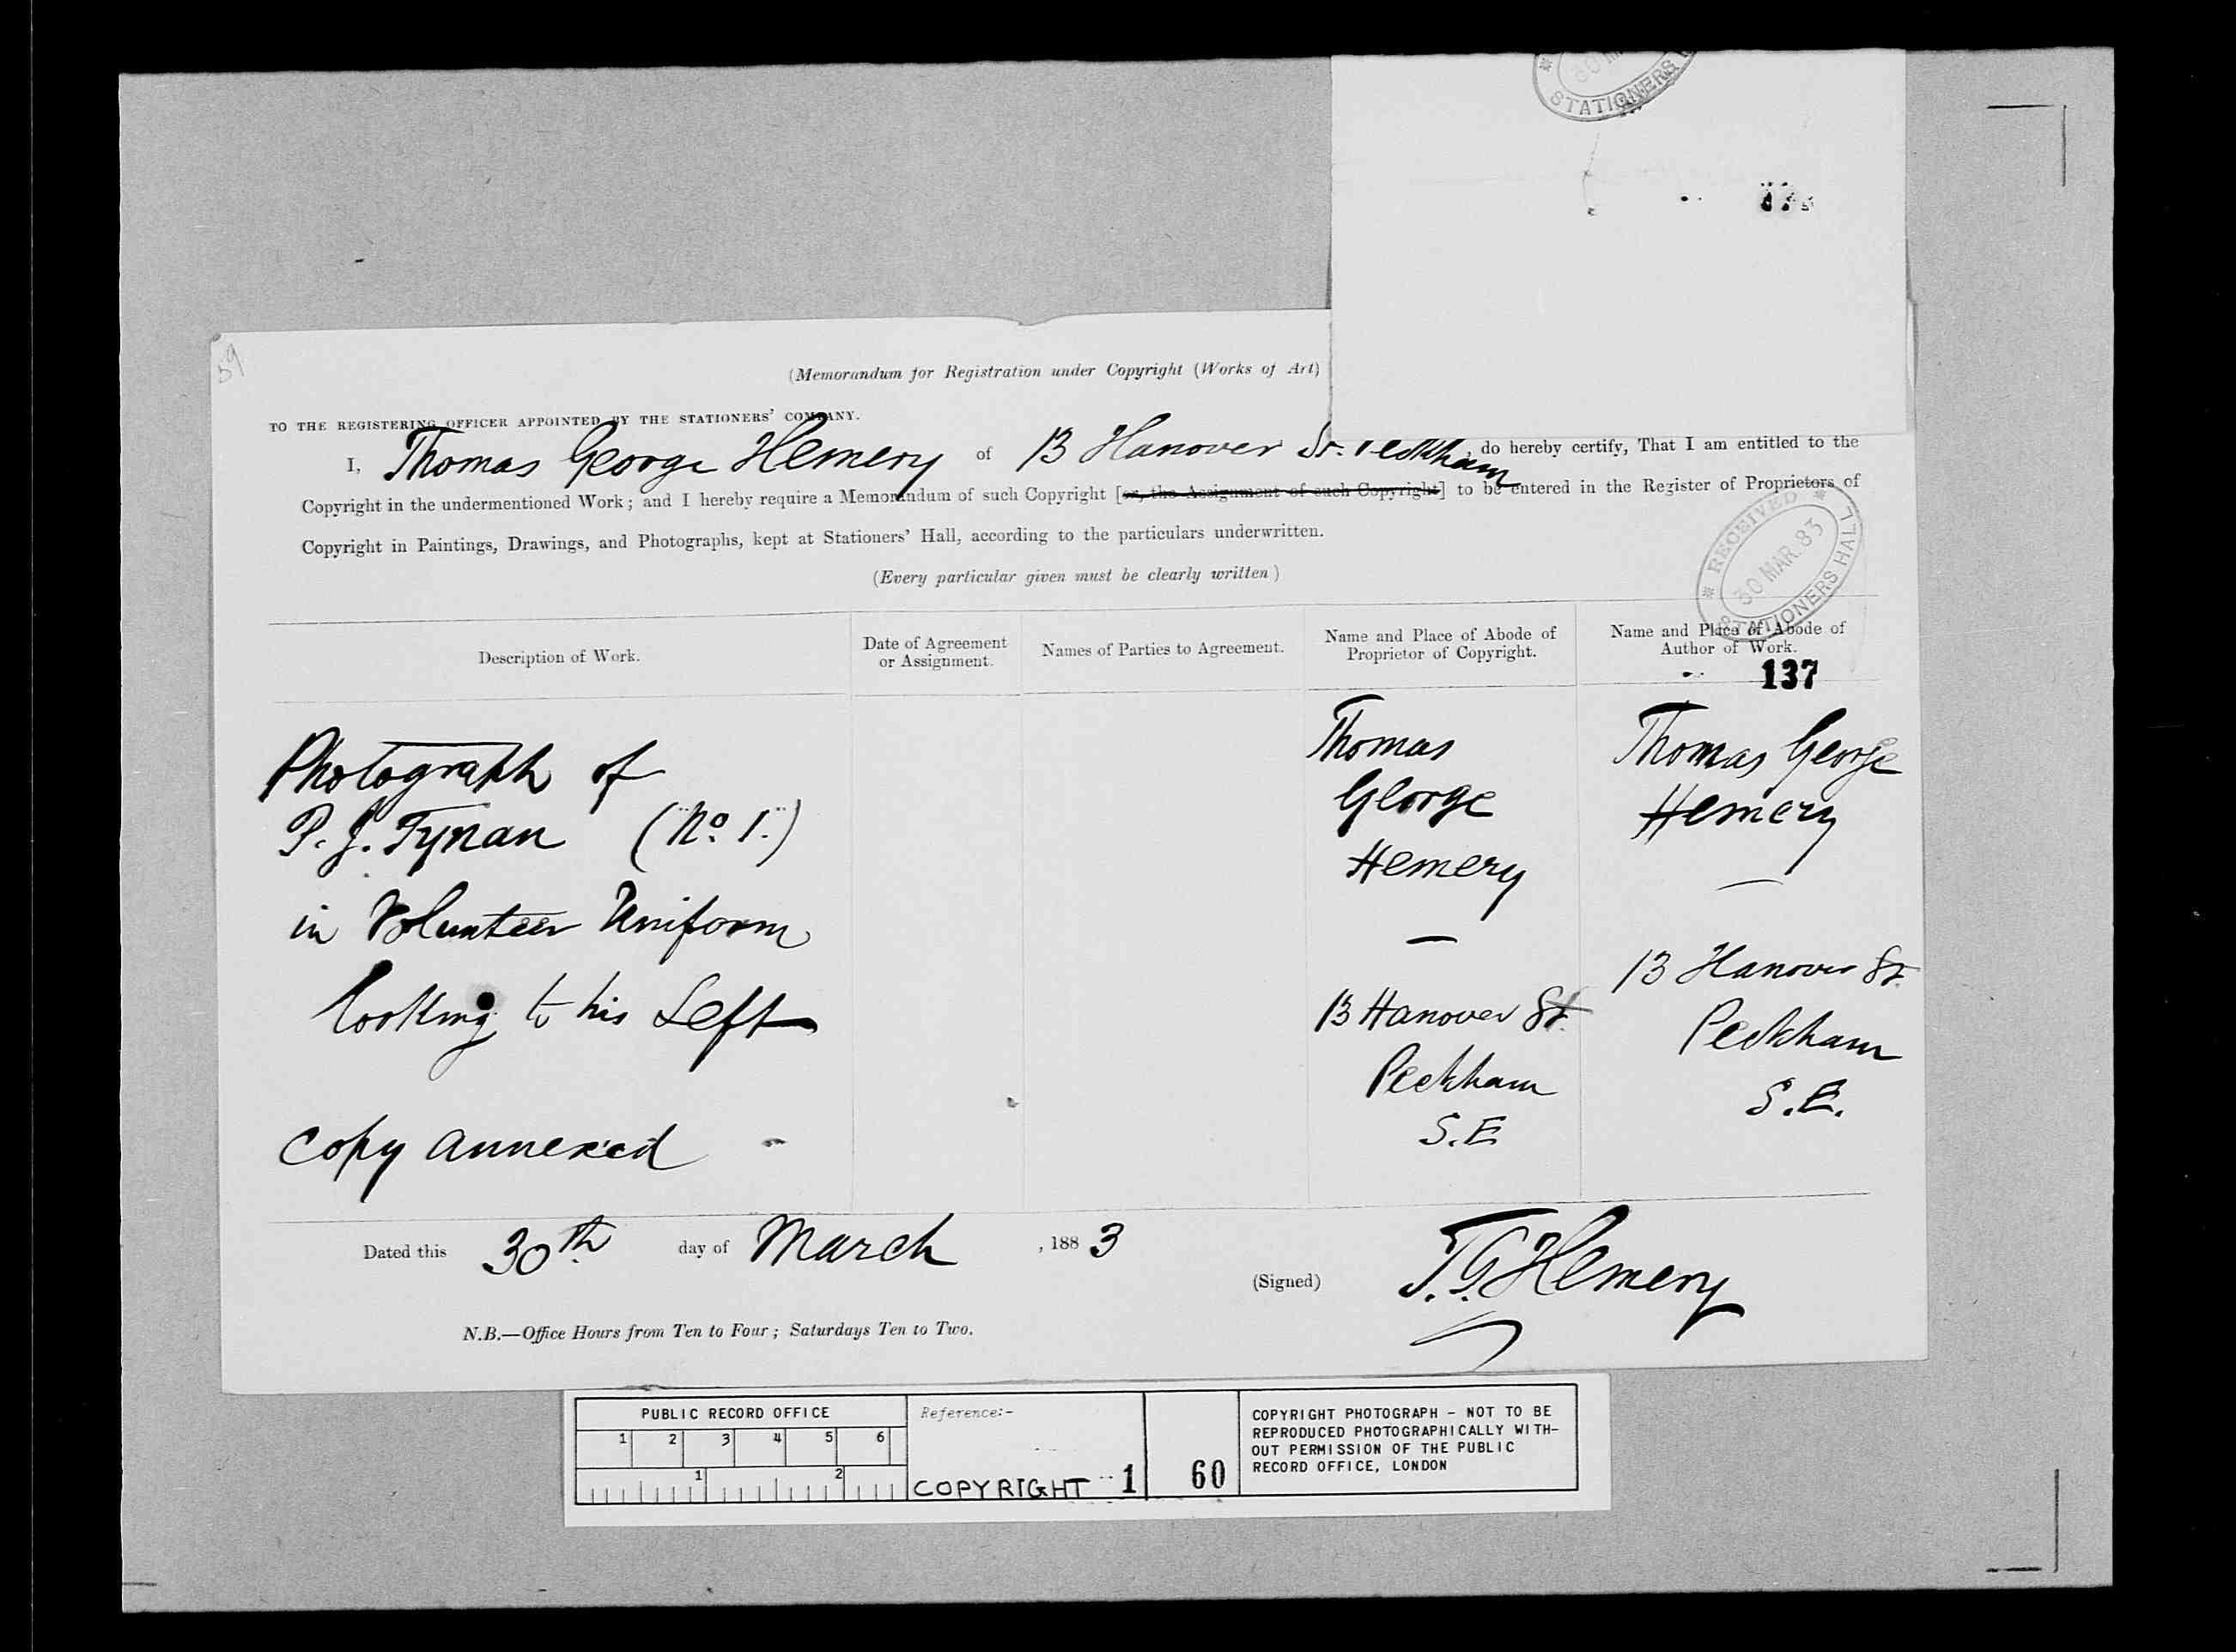 STATIONERS
59
(Memorandum for Registration under Copyright (Works of Art)
TO THE REGISTERING OFFICER APPOINTED BY THE STATIONERS' COMPANY.
I, Thomas George Hemery of 13 Hanover St. Peckham, do hereby certify, That I am entitled to the
Copyright in the undermentioned Work; and I hereby require a Memorandum of such Copyright [or, the Assignment of such Copyright] to be entered in the Register of Proprietors of
Copyright in Paintings, Drawings, and Photographs, kept at Stationers' Hall, according to the particulars underwritten.
(Every particular given must be clearly written)
RECEIVED
30 MAR. 83
STATIONERS HALL
Description of Work.
Date of Agreement
or Assignment.
Names of Parties to Agreement.
Name and Place of Abode of
Proprietor of Copyright.
Name and Place of Abode of
Author of Work.
137
Photograph of
P. J. Tynan ("No. 1.")
in Volunteer Uniform
looking to his Left
Copy annexed
Thomas
George
Hemery
13 Hanover St.
Peckham
S.E
Thomas George
Hemery
13 Hanover St.
Peckham
S.E.
Dated this 30th day of March, 1883
(Signed) T. G. Hemery
N.B.—Office Hours from Ten to Four; Saturdays Ten to Two.
PUBLIC RECORD OFFICE
1 2 3 4 5 6
1 2
Reference:-
COPYRIGHT 1
60
COPYRIGHT PHOTOGRAPH - NOT TO BE
REPRODUCED PHOTOGRAPHICALLY WITH-
OUT PERMISSION OF THE PUBLIC
RECORD OFFICE, LONDON